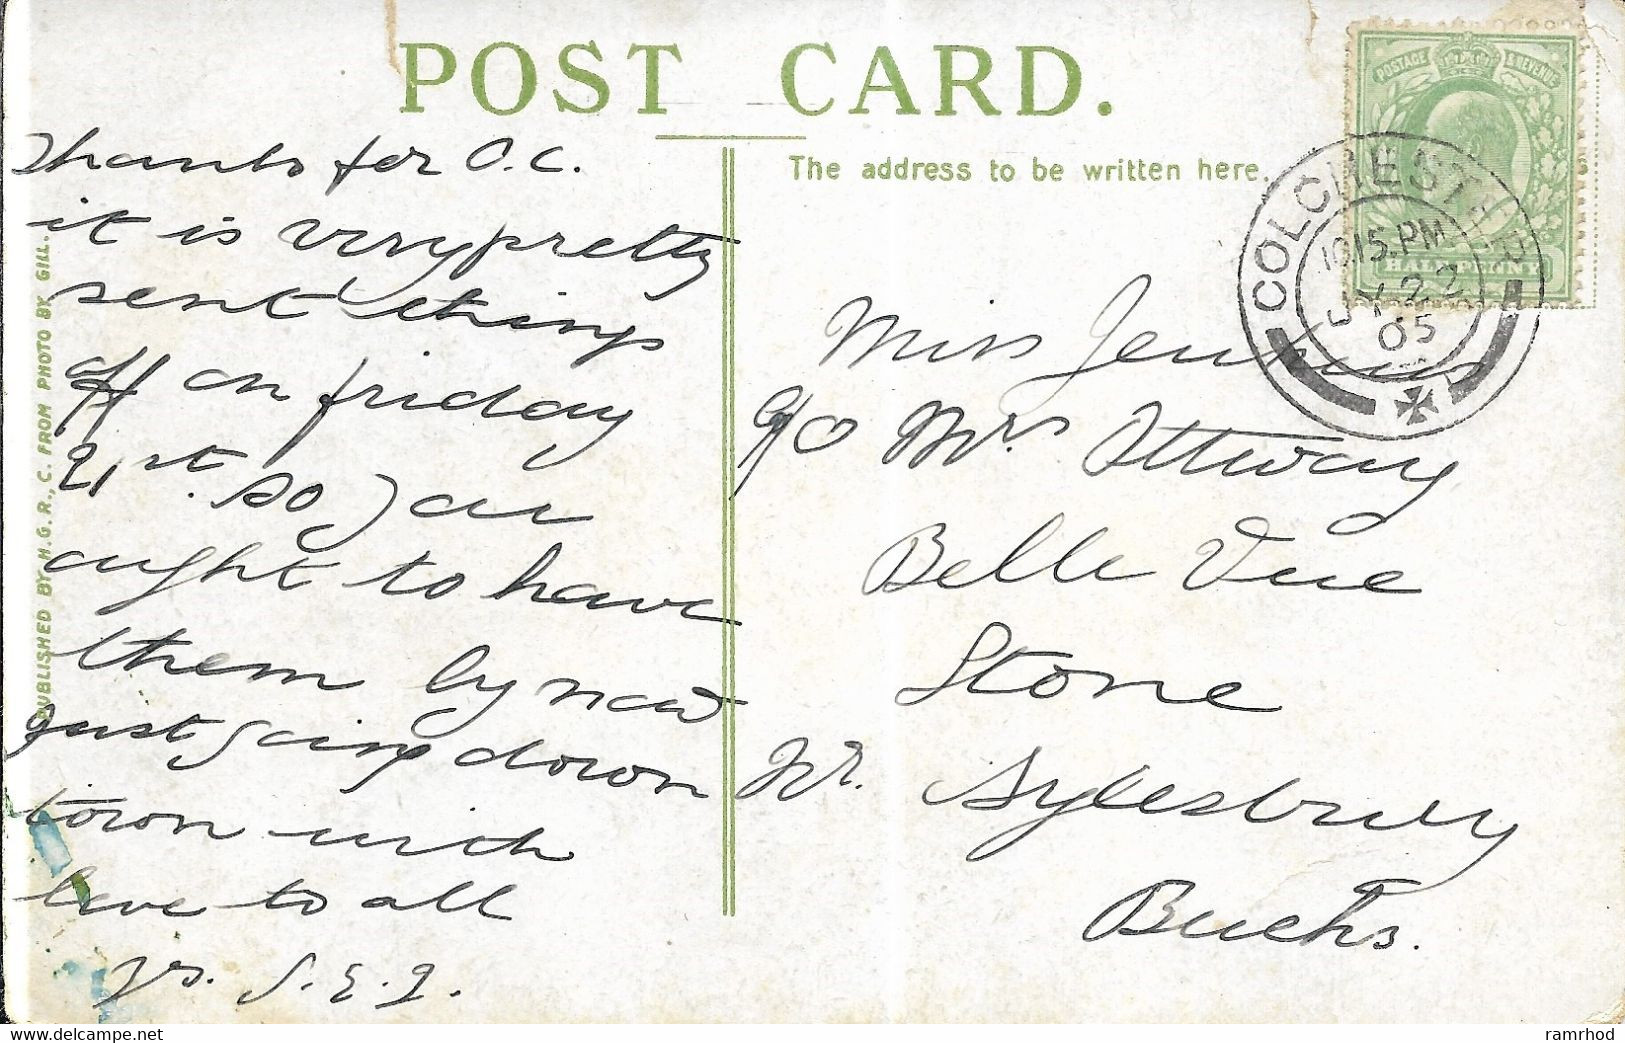 POST CARD.
The address to be written here.
Thanks for P.C.
it is very pretty
sent things
off on friday
21st. so you
ought to have
them by now
Just going down
town with
love to all
yrs. S.E.J.
PUBLISHED BY H.G.R., C. FROM PHOTO BY GILL.
Miss Jenkins
c/o Mrs Ottway
Belle Vue
Stone
Nr. Aylesbury
Bucks.
POSTAGE & REVENUE
HALFPENNY
COLCHESTER
10.15.PM
JY 22
05
ramrhod